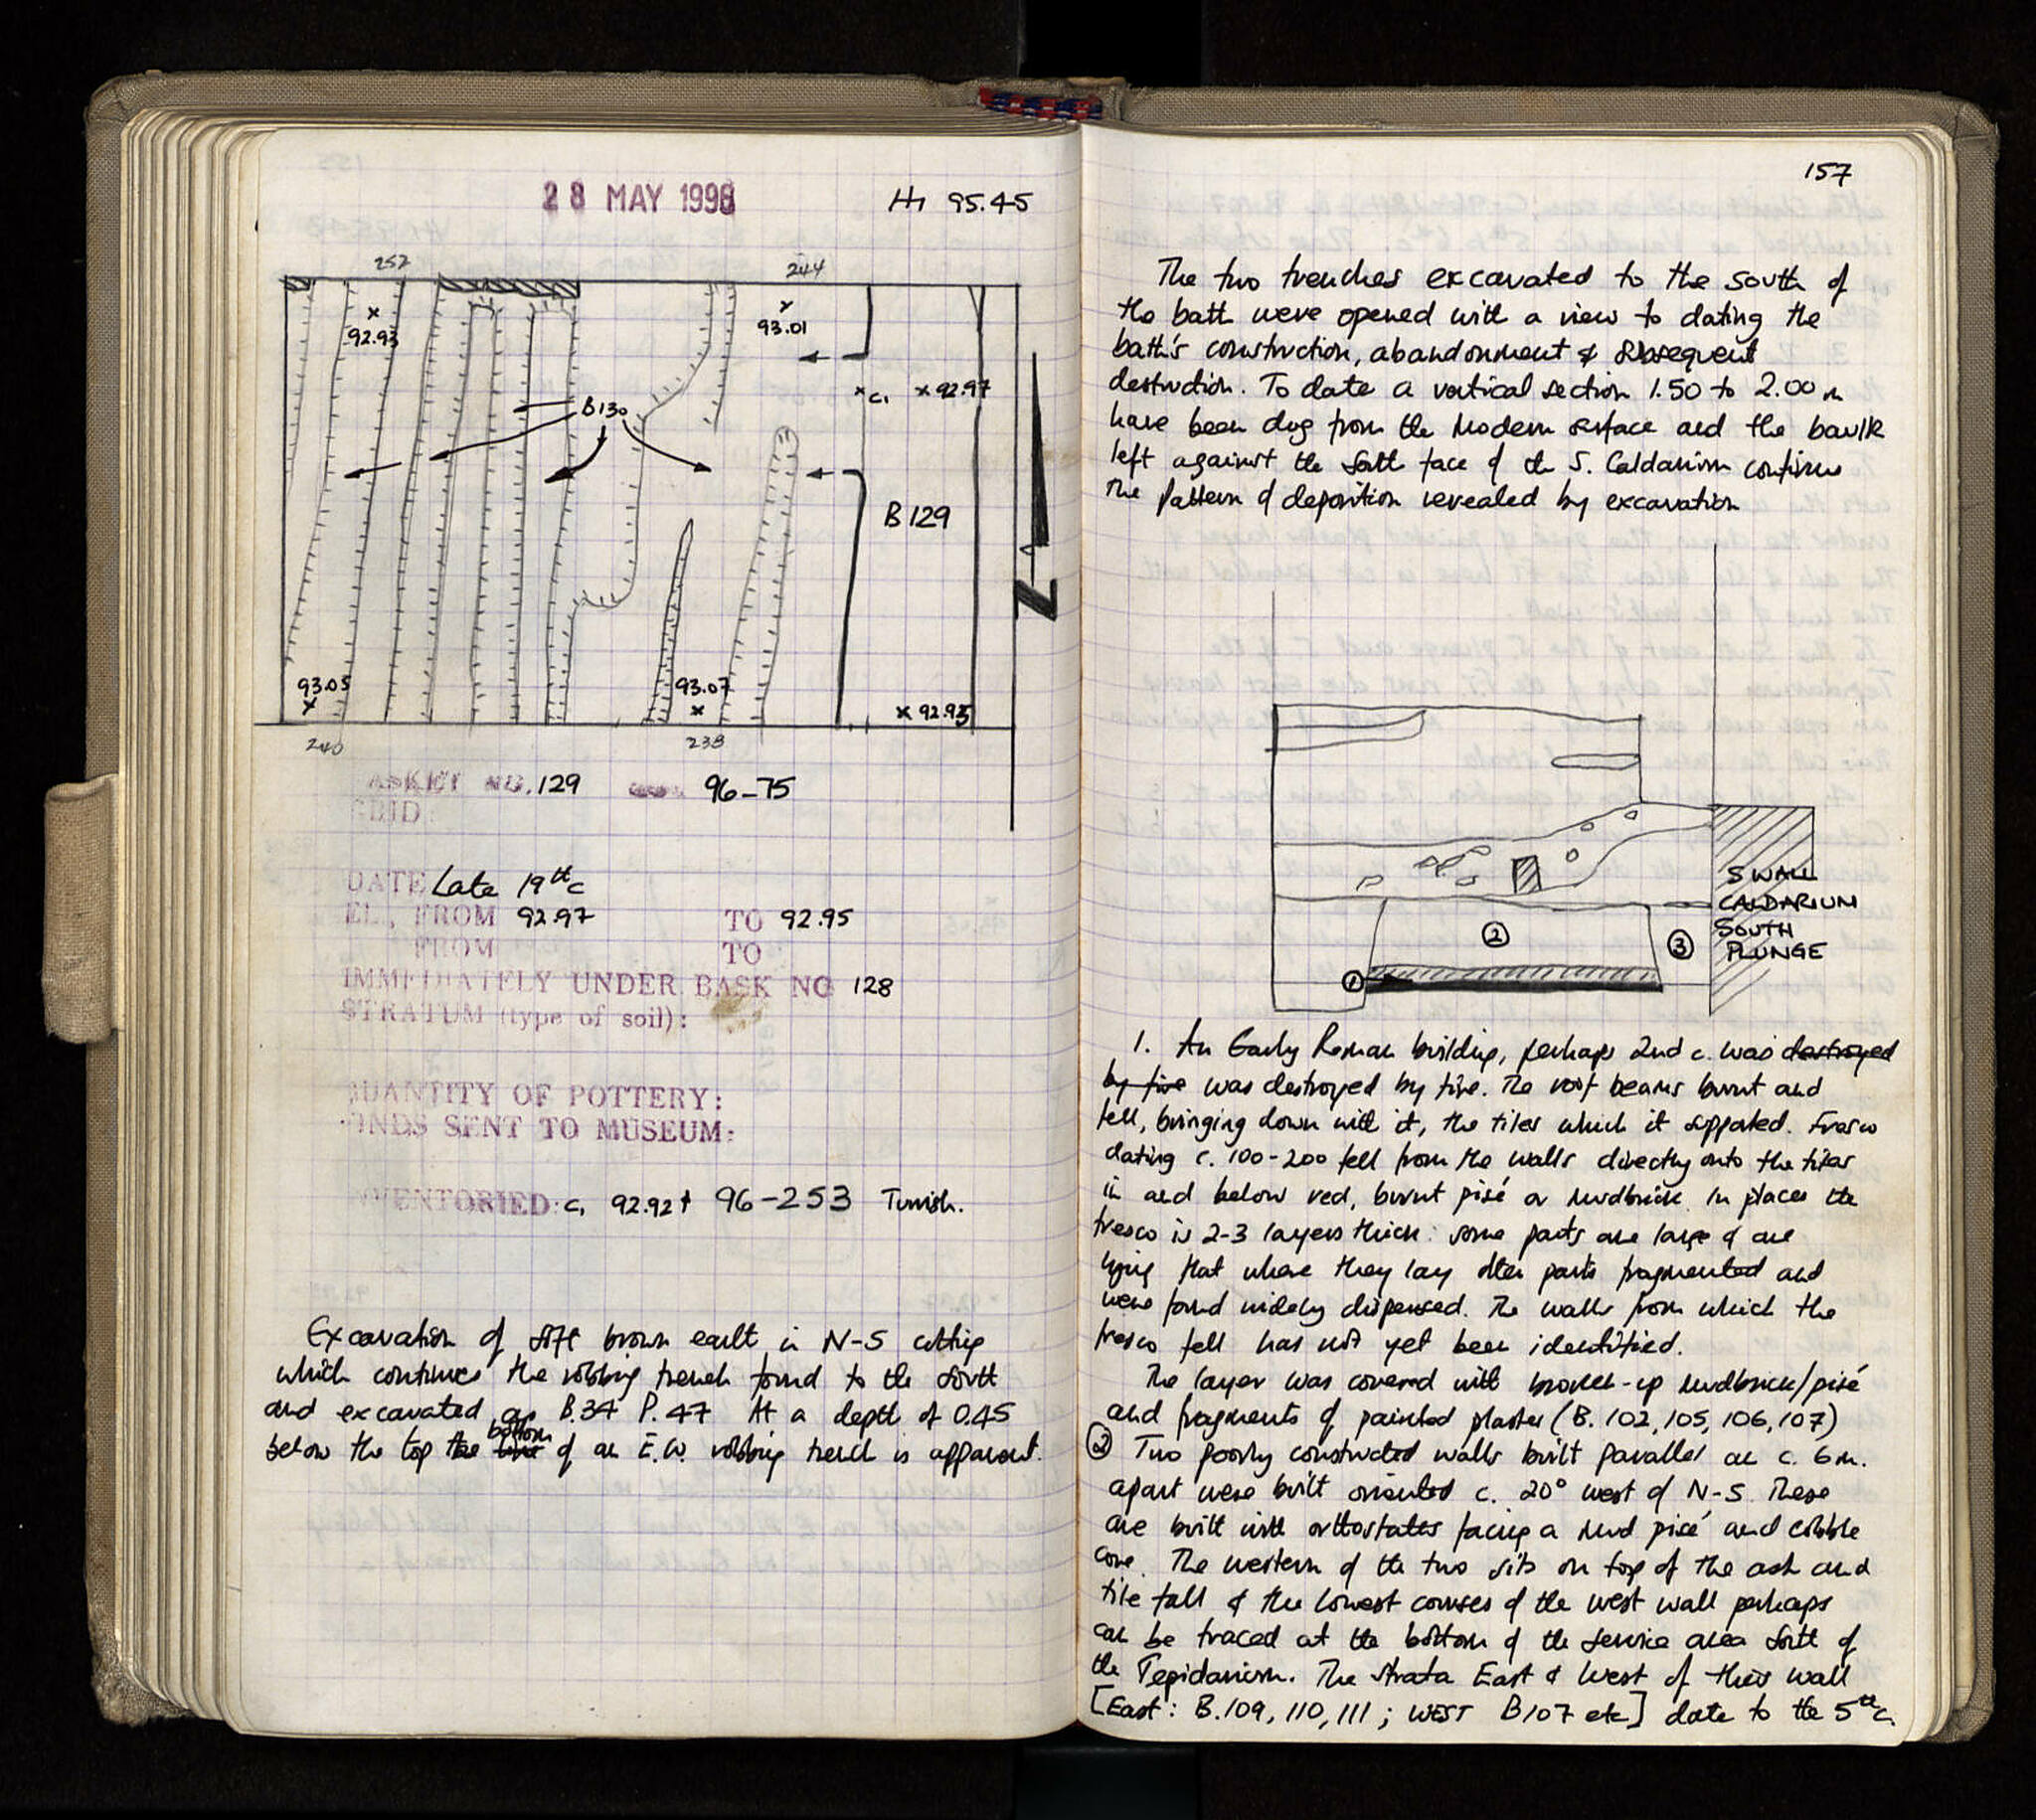 28 MAY 1996
HI 95.45
252
244
92.93
93.01
c,
92.97
B130
B129
N
93.05
93.07
92.95
240
238
ASKET NO. 129 96-75
GRID
DATE Late 19th c
EL., FROM 92.97 TO 92.95
FROM TO
IMMEDIATELY UNDER BASK NO 128
STRATUM (type of soil):
QUANTITY OF POTTERY:
INDS SENT TO MUSEUM:
NVENTORIED: c, 92.92+ 96-253 Turkish.
Excavation of soft brown earth in N-S cutting
which continues the robbing trench found to the South
and excavated as B.34 P.47 At a depth of 0.45
below the top the bottom of an E.W. robbing trench is apparent.
157
The two trenches excavated to the south of
the bath were opened with a view to dating the
bath's construction, abandonment & subsequent
destruction. To date a vertical section 1.50 to 2.00 m
have been dug from the modern surface and the baulk
left against the South face of the S. Caldarium confirms
the pattern of deposition revealed by excavation
S WALL
CALDARIUM
SOUTH
PLUNGE
1
2
3
1. An Early Roman building, perhaps 2nd c. was destroyed
by fire was destroyed by fire. The roof beams burnt and
fell, bringing down with it, the tiles which it supported. Fresco
dating c. 100-200 fell from the walls directly onto the tiles
in and below red, burnt pisé or mudbrick. In places the
fresco is 2-3 layers thick: some parts are large & are
lying flat where they lay other parts fragmented and
were found widely dispersed. The walls from which the
fresco fell has not yet been identified.
The layer was covered with broken-up mudbrick/pisé
and fragments of painted plaster (B. 102, 105, 106, 107)
2 Two poorly constructed walls built parallel at c. 6m.
apart were built oriented c. 20° west of N-S. These
are built with orthostates facing a mud pisé and cobble
core. The western of the two sits on top of the ash and
tile fall & the lowest courses of the west wall perhaps
can be traced at the bottom of the service area South of
the Tepidarium. The strata East & West of this wall
[East: B.109, 110, 111; WEST B107 etc] date to the 5th c.